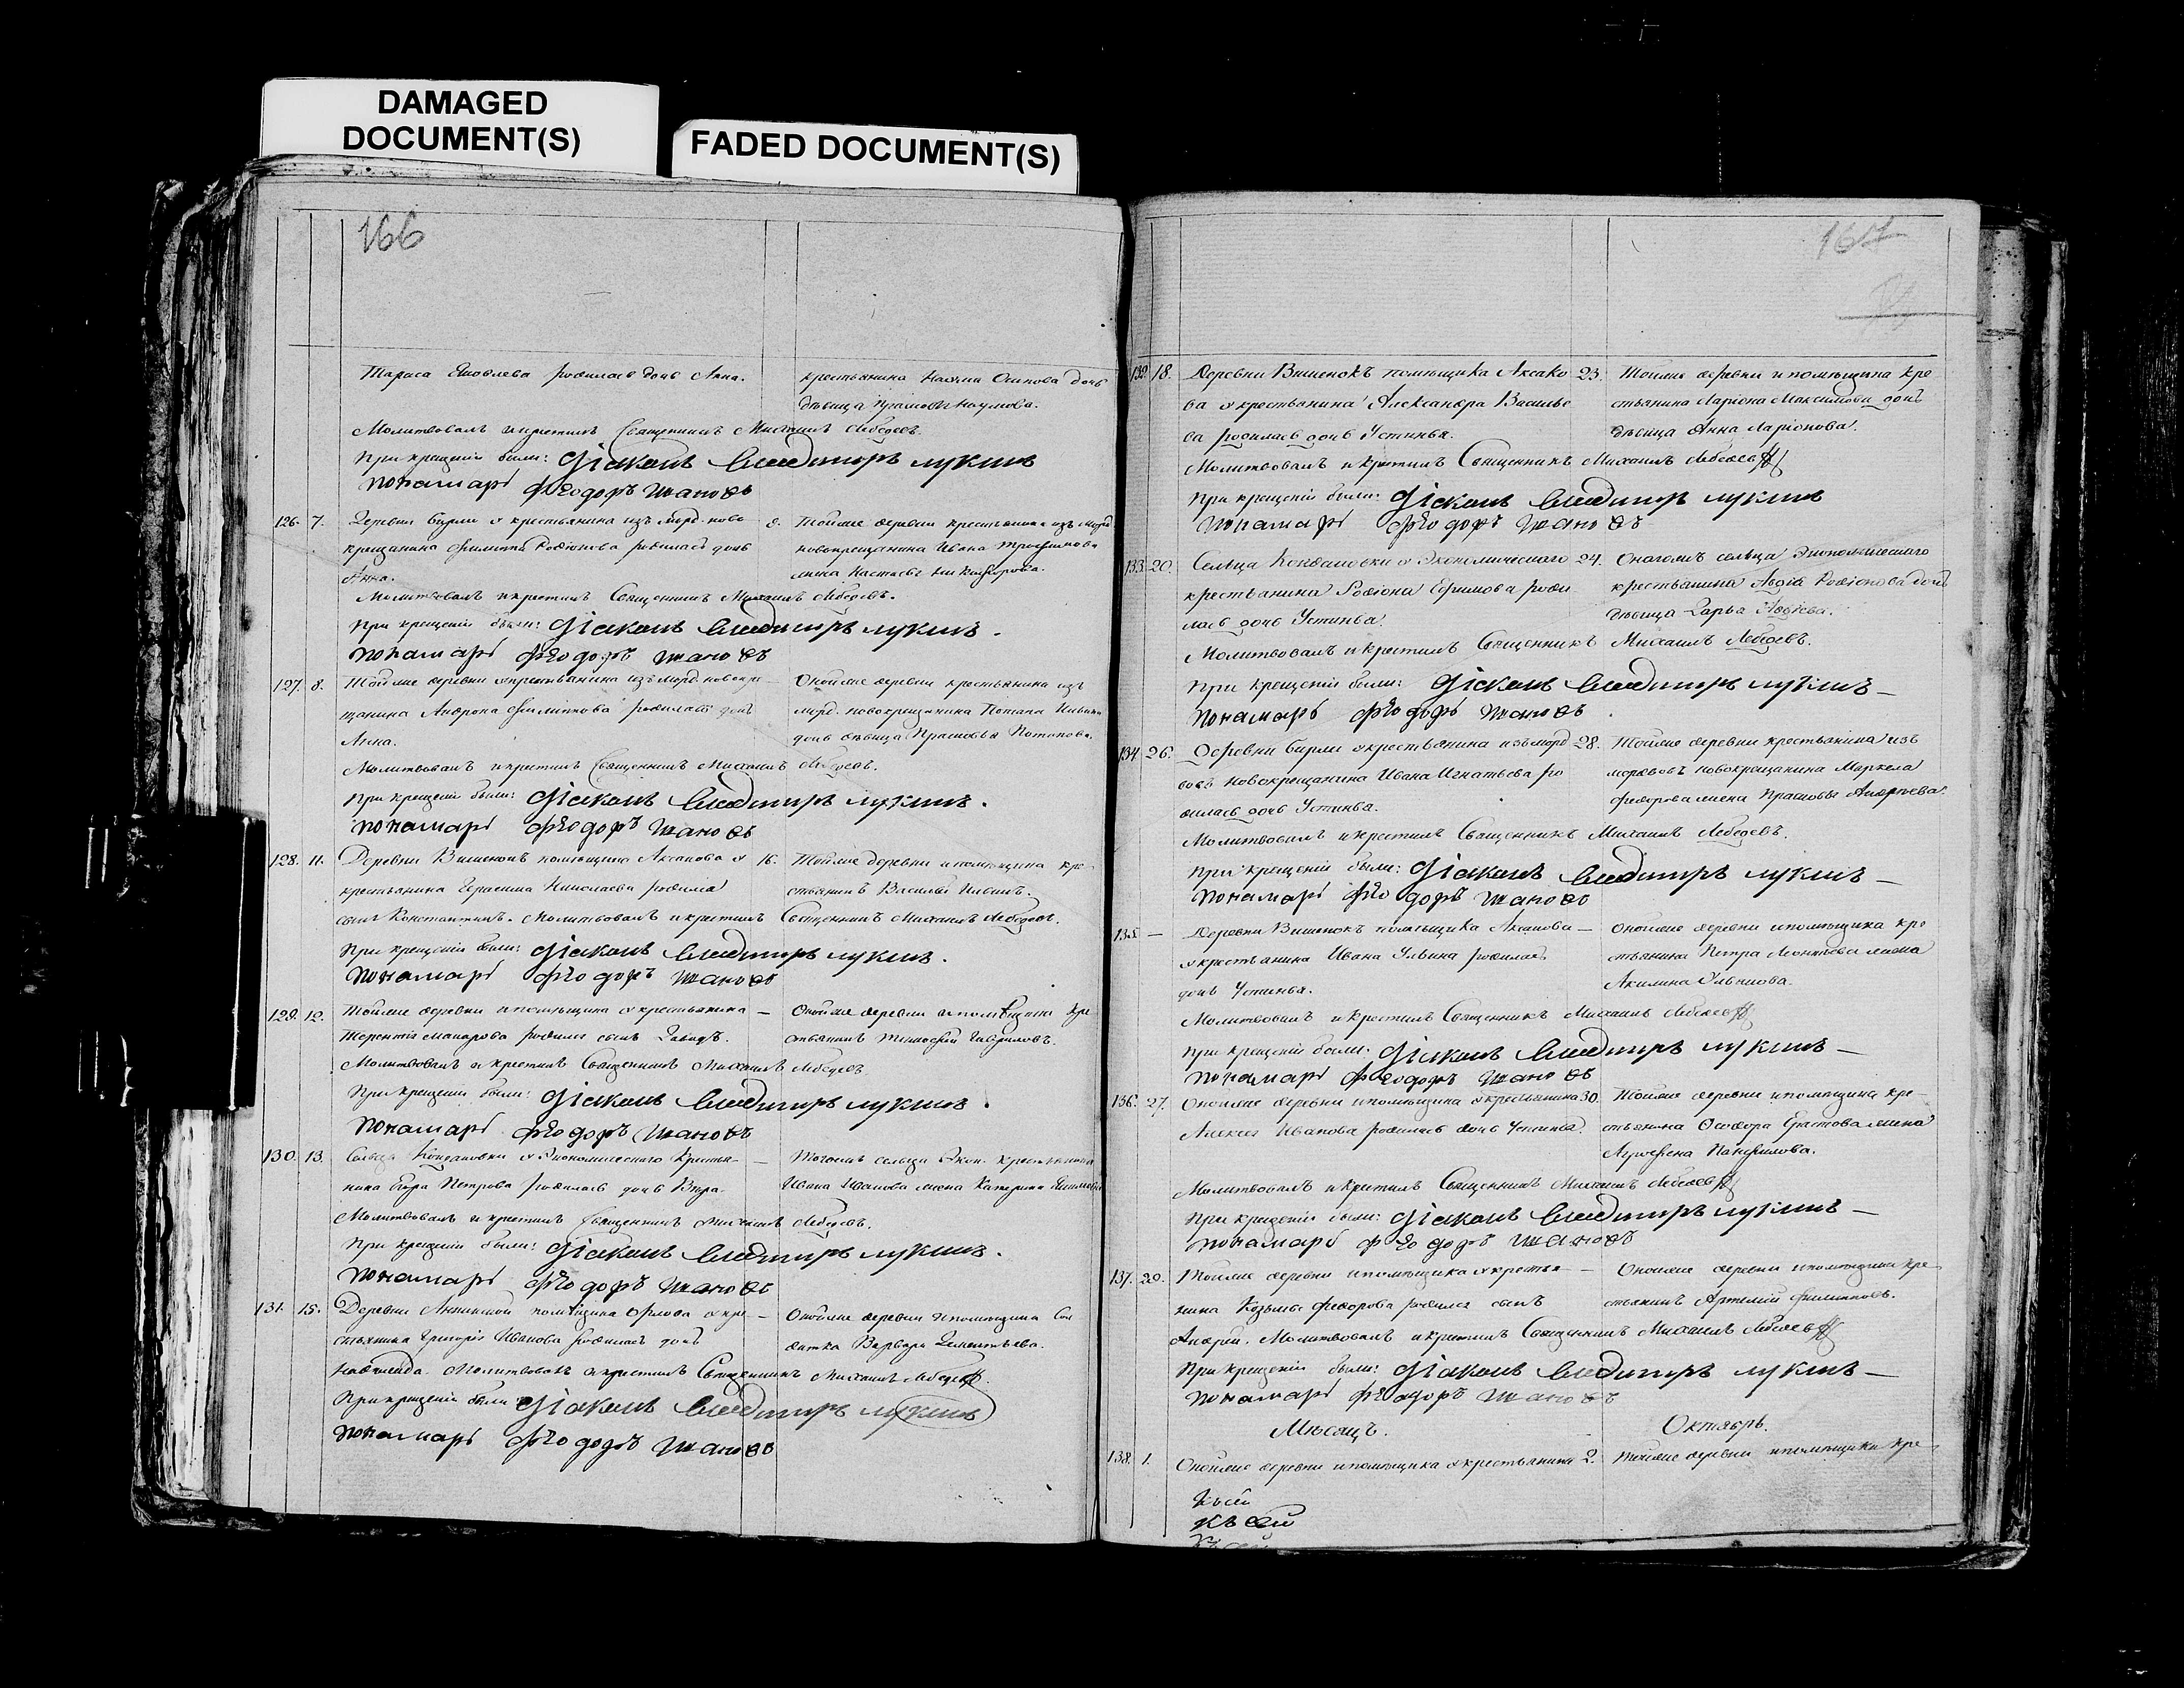 DAMAGED
DOCUMENT(S)
FADED DOCUMENT(S)
166
Тараса Яковлева родилась дочь Анна.
крестьянина Наума Осипова дочь
дѣвица Прасковья Наумова.
Молитвовалъ и крестилъ Священникъ Михаилъ Лебедевъ.
При крещеніи были: Діаконъ Владимиръ Лукинъ
пономарь Ѳеодоръ
126. 7. Деревни Бирли у крестьянина изъ морд. ново
крещанина Филиппа Родіонова родилась дочь
Анна.
8. Тойже деревни крестьянина изъ морд
новокрещанина Ивана Трофимова
жена Настасья Никифорова.
Молитвовалъ и крестилъ Священникъ Михаилъ Лебедевъ.
При крещеніи были: Діаконъ Владимиръ Лукинъ.
пономарь Ѳеодоръ
127. 8. Тойже деревни у крестьянина изъ морд. новокре
щанина Андрона Филиппова родилась дочь
Анна.
— Онойже деревни крестьянина изъ
морд. новокрещанина Потапа
дочь дѣвица Прасковья Потапова.
Молитвовалъ и крестилъ Священникъ Михаилъ Лебедевъ.
При крещеніи были: Діаконъ Владимиръ Лукинъ.
пономарь Ѳеодоръ
128. 11. Деревни Вишенокъ помѣщика Аксакова у
крестьянина Герасима Николаева родился
сынъ Константинъ. Молитвовалъ и крестилъ Священникъ Михаилъ Лебедевъ.
16. Тойже деревни и помѣщика кре
стьянинъ Василий Ильинъ.
При крещеніи были: Діаконъ Владимиръ Лукинъ.
пономарь Ѳеодоръ
129. 12. Тойже деревни и помѣщика у крестьянина
Терентія Макарова родился сынъ Давидъ.
— Онойже деревни и помѣщика кре
стьянинъ Тимофей Гавриловъ.
Молитвовалъ и крестилъ Священникъ Михаилъ Лебедевъ
При крещеніи были: Діаконъ Владимиръ Лукинъ.
пономарь Ѳеодоръ
130. 13. Сельца у Экономическаго крестья
нина Егора Петрова родилась дочь Вѣра.
— Тогожъ сельца Экон. крестьянина
Ивана Иванова жена Катерина
Молитвовалъ и крестилъ Священникъ Михаилъ Лебедевъ.
При крещеніи были: Діаконъ Владимиръ Лукинъ.
пономарь Ѳеодоръ
131. 15. Деревни помѣщика Орлова у кре
стьянина Григорія Иванова родилась дочь
— Онойже деревни и помѣщика сол
датка Варвара Дементьева.
Молитвовалъ и крестилъ Священникъ Михаилъ Лебедевъ.
При крещеніи были Діаконъ Владимиръ Лукинъ
пономарь Ѳеодоръ
132. 18. Деревни Вишенокъ помѣщика Аксако
ва у крестьянина Александра Василье
ва родилась дочь Устинья.
23. Тойже деревни и помѣщика кре
стьянина Ларіона Максимова дочь
дѣвица Анна Ларіонова.
Молитвовалъ и крестилъ Священникъ Михаилъ Лебедевъ
При крещеніи были: Діаконъ Владимиръ Лукинъ
пономарь Ѳеодоръ
133. 20. Сельца у Экономическаго
крестьянина Родіона Ефимова роди
лась дочь Устинья.
24. Онагожъ сельца Экономическаго
крестьянина Авдія Родіонова дочь
дѣвица Дарья Авдіева.
Молитвовалъ и крестилъ Священникъ Михаилъ Лебедевъ.
При крещеніи были: Діаконъ Владимиръ Лукинъ —
пономарь Ѳеодоръ
134. 26. Деревни Бирли у крестьянина изъ морд
вовъ новокрещанина Ивана Игнатьева ро
дилась дочь Устинья.
28. Тойже деревни крестьянина изъ
мордвовъ новокрещанина Маркела
Федорова жена Прасковья Андреева.
Молитвовалъ и крестилъ Священникъ Михаилъ Лебедевъ.
При крещеніи были: Діаконъ Владимиръ Лукинъ —
пономарь Ѳеодоръ
135. — Деревни Вишенокъ помѣщика Аксакова —
у крестьянина Ивана Ульина родилась
дочь Устинья.
Онойже деревни и помѣщика кре
стьянина Петра Леонтьева жена
Акилина
Молитвовалъ и крестилъ Священникъ Михаилъ Лебедевъ
При крещеніи были: Діаконъ Владимиръ Лукинъ —
пономарь Ѳеодоръ
136. 27. Онойже деревни и помѣщика у крестьянина
Алексея Иванова родилась дочь Устинья.
30. Тойже деревни и помѣщика кре-
стьянина Ѳеодора Ерастова жена
Агрофена Панфилова.
Молитвовалъ и крестилъ Священникъ Михаилъ Лебедевъ
При крещеніи были: Діаконъ Владимиръ Лукинъ —
пономарь Ѳеодоръ
137. 29. Тойже деревни и помѣщика у крестья
нина Козьмы Федорова родился сынъ
— Онойже деревни и помѣщика кре
стьянинъ Артемій Филипповъ.
Андрей. Молитвовалъ и крестилъ Священникъ Михаилъ Лебедевъ
При крещеніи были: Діаконъ Владимиръ Лукинъ —
пономарь Ѳеодоръ
Мѣсяцъ. Октябрь.
138. 1. Онойже деревни и помѣщика у крестьянина
2. Тойже деревни и помѣщика кре
Къ сей
Къ сей